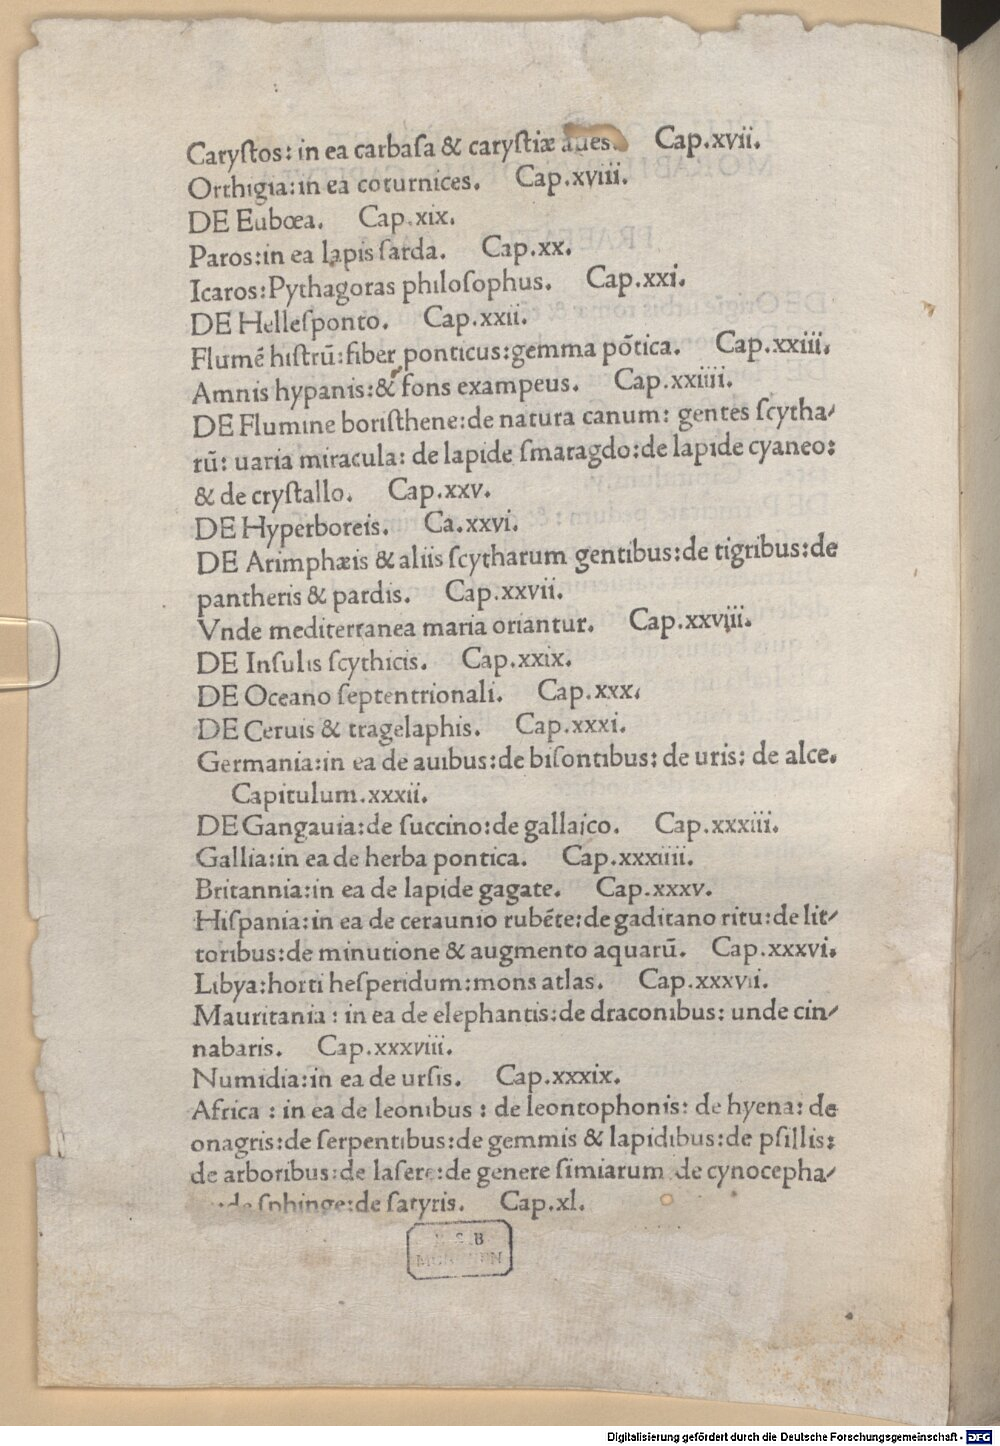 Caryſtos: in ea carbaſa & caryſtiæ aues. Cap.xvii.
Orthigia:in ea coturnices. Cap.xviii.
DE Eubœa. Cap.xix.
Paros:in ea lapis ſarda. Cap.xx.
Icaros:Pythagoras philoſophus. Cap.xxi.
DE Helleſponto. Cap.xxii.
Flumē hiſtrū:fiber ponticus:gemma pōtica. Cap.xxiii.
Amnis hypanis:& fons exampeus. Cap.xxiiii.
DE Flumine boriſthene:de natura canum: gentes ſcytha⸗
rū: uaria miracula: de lapide ſmaragdo:de lapide cyaneo:
& de cryſtallo. Cap.xxv.
DE Hyperboreis. Ca.xxvi.
DE Arimphæis & aliis ſcytharum gentibus:de tigribus:de
pantheris & pardis. Cap.xxvii.
Vnde mediterranea maria oriantur. Cap.xxviii.
DE Inſulis ſcythicis. Cap.xxix.
DE Oceano ſeptentrionali. Cap.xxx.
DE Ceruis & tragelaphis. Cap.xxxi.
Germania:in ea de auibus:de biſontibus: de uris: de alce.
Capitulum.xxxii.
DE Gangauia:de ſuccino:de gallaico. Cap.xxxiii.
Gallia:in ea de herba pontica. Cap.xxxiiii.
Britannia:in ea de lapide gagate. Cap.xxxv.
Hiſpania:in ea de ceraunio rubēte:de gaditano ritu:de lit⸗
toribus:de minutione & augmento aquarū. Cap.xxxvi.
Libya:horti heſperidum:mons atlas. Cap.xxxvii.
Mauritania: in ea de elephantis:de draconibus: unde cin⸗
nabaris. Cap.xxxviii.
Numidia:in ea de urſis. Cap.xxxix.
Africa : in ea de leonibus : de leontophonis: de hyena: de
onagris:de ſerpentibus:de gemmis & lapidibus:de pſillis:
de arboribus:de laſere:de genere ſimiarum de cynocepha⸗
:de ſphinge:de ſatyris. Cap.xl.
B.S.B
MÜNCHEN
Digitalisierung gefördert durch die Deutsche Forschungsgemeinschaft - DFG